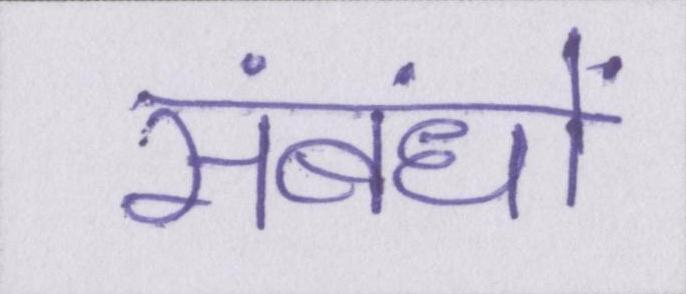 संबंधों